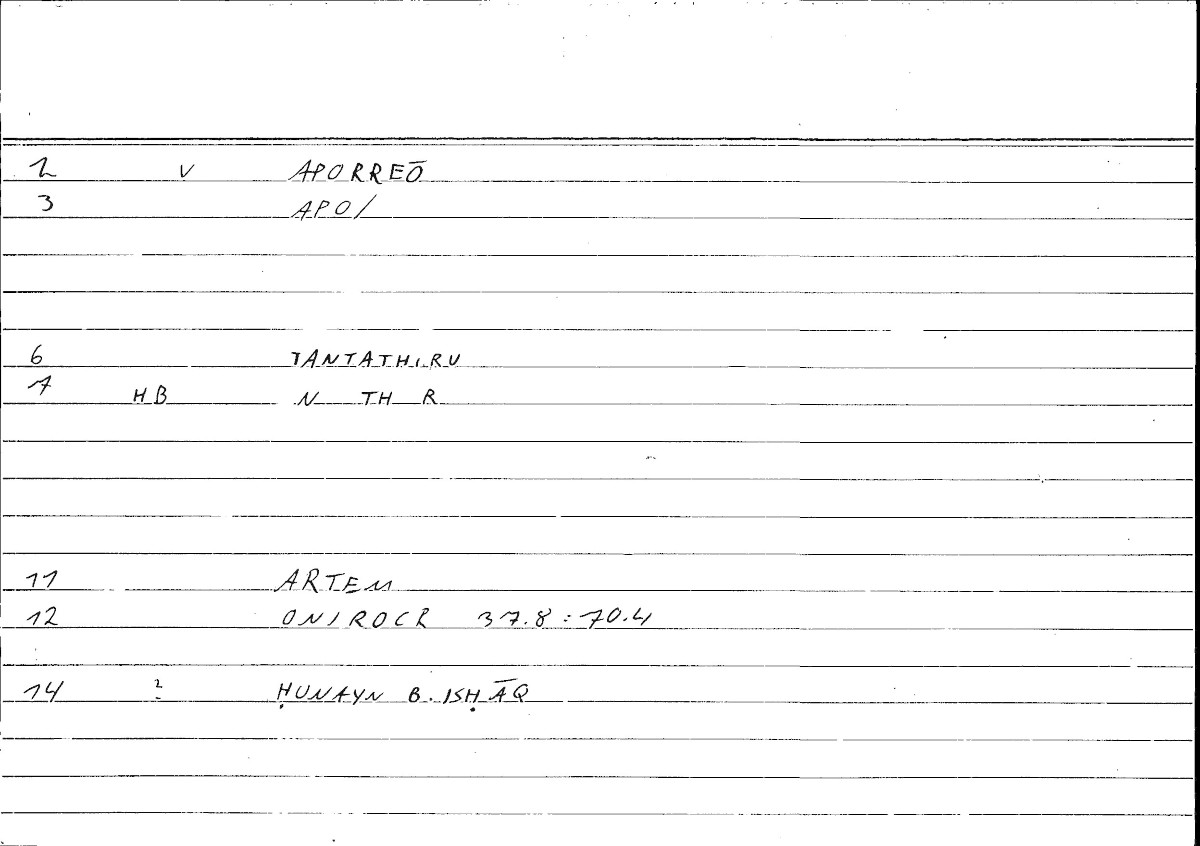 2 V APORREŌ
3 APO/
6 TANTATHIRU
7 HB N TH R
11 ARTEM
12 ONIROCR 37.8 : 70.4
14 2 ḤUNAYN B. ISḤĀQ